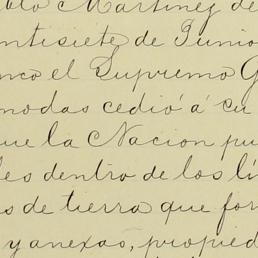 blo Martinez de
ntisiete de Junio
nco el Supremo G
modas cedió á su
ue la Nacion pu
les dentro de los lí
s de tierra que for
y anexas, propied